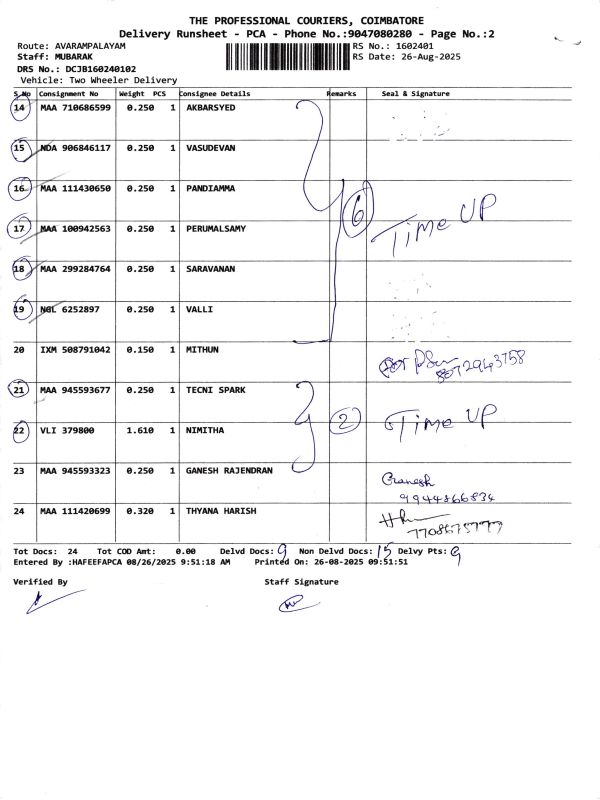 THE PROFESSIONAL COURIERS, COIMBATORE
Delivery Runsheet - PCA - Phone No.:9047080280 - Page No.:2
Route: AVARAMPALAYAM
RS No.: 1602401
Staff: MUBARAK
RS Date: 26-Aug-2025
DRS No.: DCJB160240102
Vehicle: Two Wheeler Delivery
S.No Consignment No Weight PCS Consignee Details Remarks Seal & Signature
14 MAA 710686599 0.250 1 AKBARSYED
15 NDA 906846117 0.250 1 VASUDEVAN
16 MAA 111430650 0.250 1 PANDIAMMA
6
17 MAA 100942563 0.250 1 PERUMALSAMY
Time UP
18 MAA 299284764 0.250 1 SARAVANAN
19 NGL 6252897 0.250 1 VALLI
20 IXM 508791042 0.150 1 MITHUN
8072943758
21 MAA 945593677 0.250 1 TECNI SPARK
22 VLI 379800 1.610 1 NIMITHA
2 Time UP
23 MAA 945593323 0.250 1 GANESH RAJENDRAN
Ganesh
9944866834
24 MAA 111420699 0.320 1 THYANA HARISH
7708675777
Tot Docs: 24 Tot COD Amt: 0.00 Delvd Docs: 9 Non Delvd Docs: 15 Delvy Pts: 9
Entered By :HAFEEFAPCA 08/26/2025 9:51:18 AM Printed On: 26-08-2025 09:51:51
Verified By Staff Signature